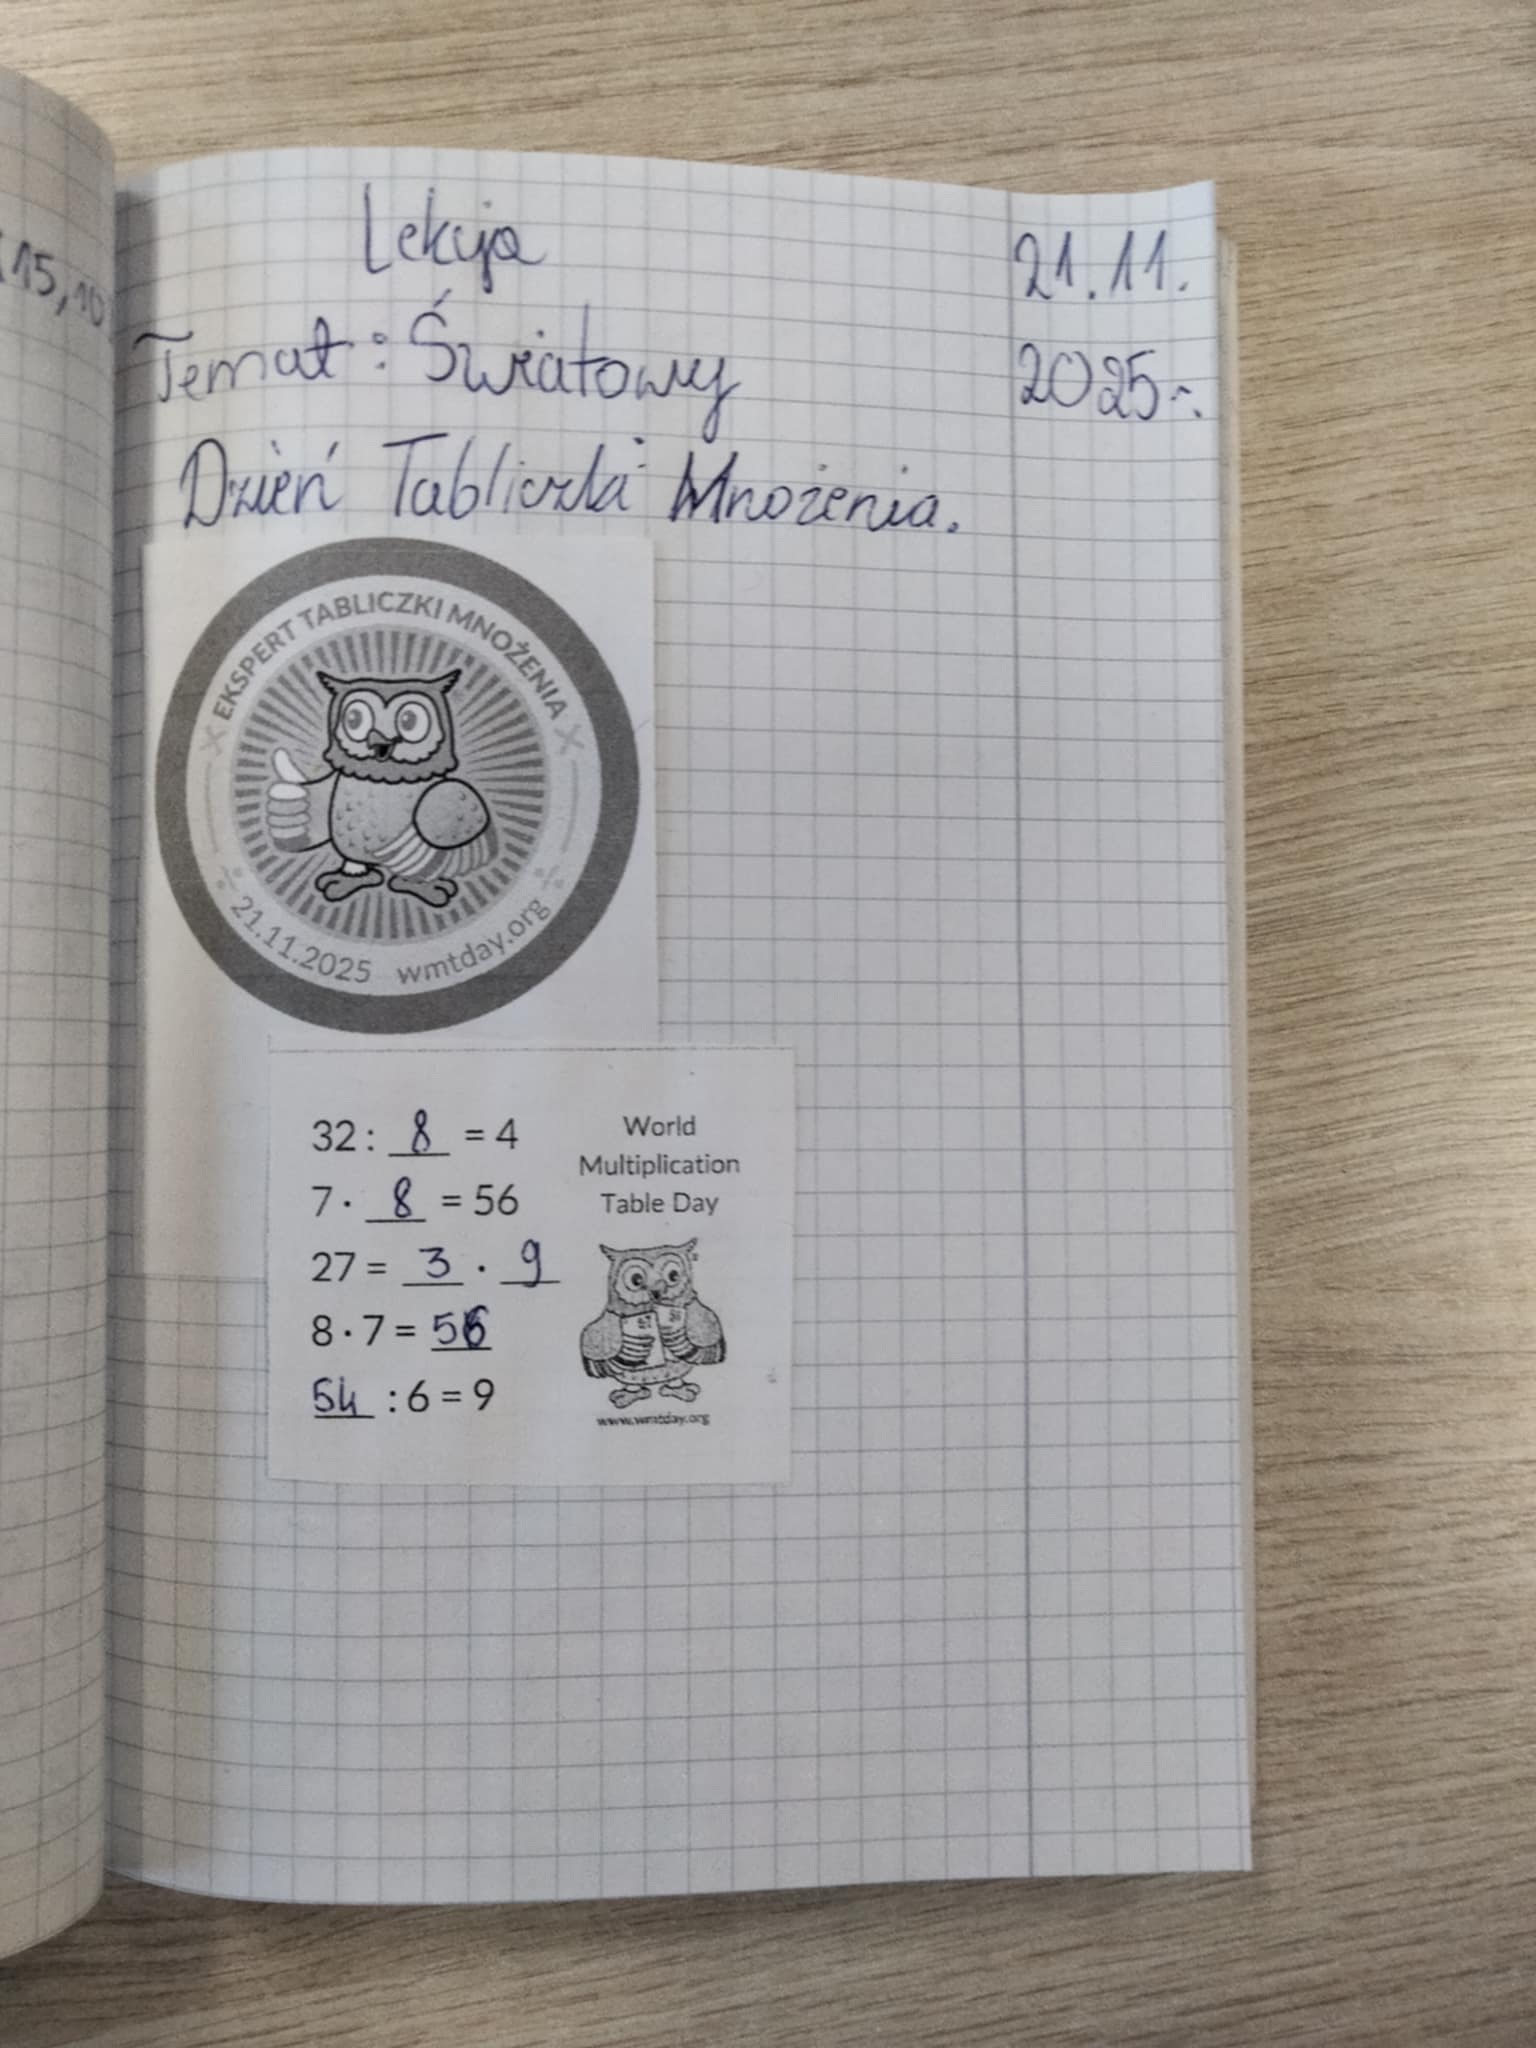 Lekcja
21.11.
Temat: Światowy
2025r.
Dzień Tabliczki Mnożenia.
15,10
EKSPERT TABLICZKI MNOŻENIA
21.11.2025 wmtday.org
32 : 8 = 4
7 · 8 = 56
27 = 3 · 9
8 · 7 = 56
54 : 6 = 9
World
Multiplication
Table Day
www.wmtday.org